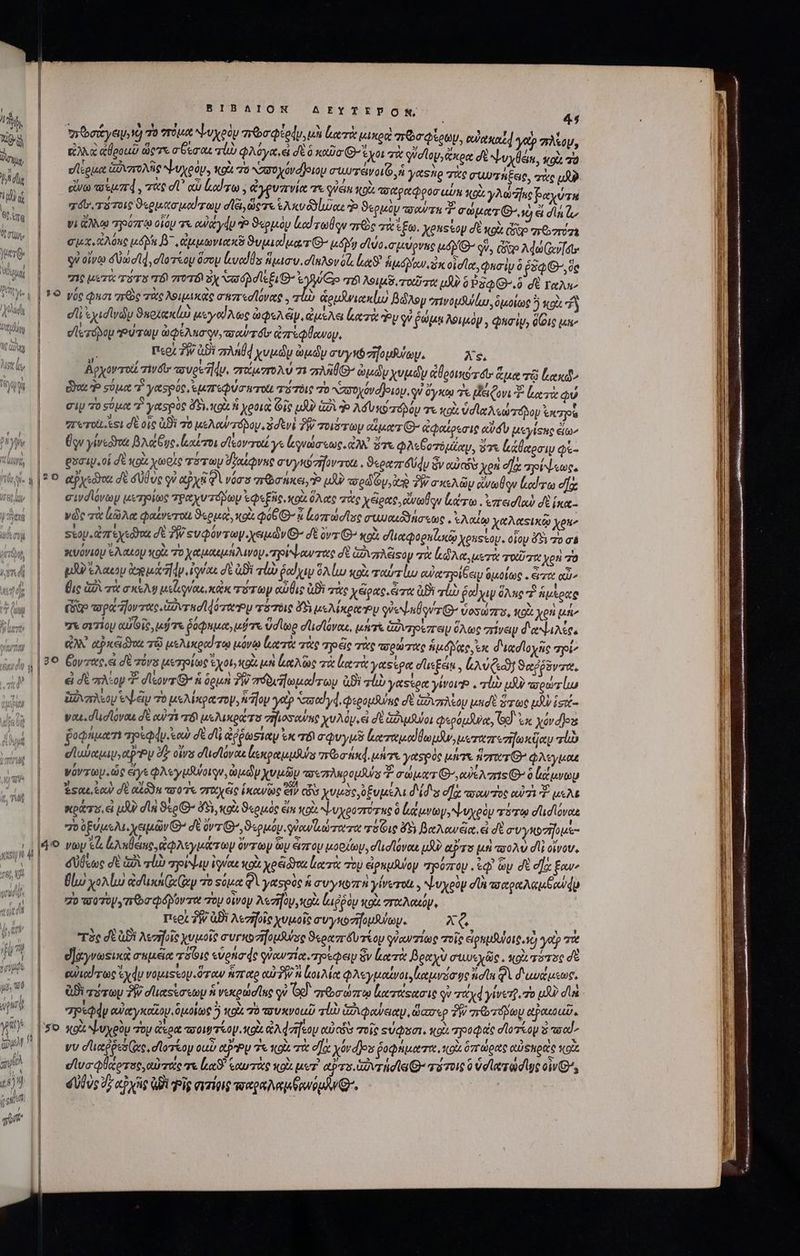 ΒΙΒΛΙΟΝ ΔΕΥΤΕΡΟΝ. 45
προσάγειν, καὶ τὸ πόμα ψυχρὸν προσφέρειν, μὴ κατὰ μικρὰ προσφέρων, ἀνακαίει γὰρ πλέον,
ἀλλὰ ἀθροῦν ὥστε σβέσαι τὴν φλόγα, εἰ δὲ ὁ καῦσος ἔχοι τὰ ἔνδον, ἄκρα δὲ ψυχθείη, καὶ τὸ
δέρμα ἐπιπολῆς ψυχρὸν, καὶ τὸ ὑποχόνδριον συντείνοιτο, ἢ γαστὴρ τὰς συντήξεις, τὰς μὲν
ἄνω πέμπει, τὰς δ' αὖ κάτω, ἀγρυπνία τε ἐνείη καὶ παραφροσύνη καὶ γλώττης βραχύτη
τος, τούτοις θερμάσμασιν δεῖ, ὥστε ἑλκυσθῆναι τὸ θερμὸν παντὶ τοῦ σώματος, καὶ εἰ δή κα
νι ἄλλῳ τρόπῳ οἷον τε ἀνάγειν τὸ θερμὸν κάτωθεν πρὸς τὰ ἔξω. χρηστέον δὲ καὶ τὸ πρόποτι
σμα. ἀλόης μέρη β, ἀμμωνιακοῦ θυμιάματος μέρη δύο. σμύρνης μέρος ἕν, ταῦτα λειώσαντας
ἐν οἴνῳ εὐώδει, δοτέον ὅσον κυάθου ἥμισυ. δίδον οὖν καθ' ἡμέραν. οὐκ οἶδα, φησὶν ὁ ῥοῦφος, ὅς
τις μετὰ τοῦτο τὸ ποτὸν οὐχ ὑπέρδεξιος ἐγένετο τοῦ λοιμοῦ. ταῦτα μὲν ὁ ῥοῦφος. ὁ δὲ γαλη
10 νός φησι πρὸς τὰς λοιμικὰς σηπεδόνας, τὴν ἀρμενιακὴν βῶλον πινομένην, ὁμοίως δὲ καὶ τὴν
δι' ἐχιδνῶν θηριακὴν μεγάλως ὠφελεῖν. ἀμέλει κατὰ τὸν ἐν ῥώμῃ λοιμὸν, φησὶν, ὅσοις μη
δέτερον τούτων ὠφέλησεν, πάντες ἀπέφθανον.
Περὶ τῶν ἐπὶ πλήθει χυμῶν ὠμῶν συγκοπτομένων. λς.
Ἄρχονταί τινες πυρέττειν, πάμπολύ τι πλῆθος ὠμῶν χυμῶν ἀθροισθέντες ἅμα τῷ κακοῦ
σθαι τὸ σῶμα τῆς γαστρὸς. ἐμπεφύσηται τούτοις τὸ ὑποχόνδριον, ἐν ὄγκῳ τε μείζονι τοῦ κατὰ φύ
σιν τὸ σῶμα τῆς γαστρὸς ἐστὶ. καὶ ἡ χροιὰ τοῖς μὲν ἐπὶ τὸ λευκότερον τε καὶ ὑδατωδέστερον ἐκτρέ
πεται. ἔστι δὲ οἷς ἐπὶ τὸ μελάντερον. οὐδενὶ τῶν τοιούτων αἵματος ἀφαίρεσις ἄνευ μεγίστης εἴω
θεν γίνεσθαι βλάβης. καίτοι δέονται γε κενώσεως. ἀλλ' οὔτε φλεβοτομίαν, οὔτε κάθαρσιν φέ
ρουσιν. οἱ δὲ καὶ χωρὶς τούτων ἐξαίφνης συγκόπτονται. θεραπεύειν οὖν αὐτοὺς χρὴ διὰ τρίψεως.
20 ἄρχεσθαι δὲ εὐθὺς ἐν ἀρχῇ τοῦ νόσου προσήκει, τὸ μὲν πρῶτον, ἀπὸ τῶν σκελῶν ἄνωθεν κάτω διὰ
σινδόνων μετρίως τραχυτέρων ἐφεξῆς. καὶ ὅλας τὰς χεῖρας, ἄνωθεν κάτω. ἐπειδὰν δὲ ἱκα
νῶς τὰ κῶλα φαίνηται θερμὰ, καὶ φόβος ᾖ κοπώδους συναισθήσεως. ἐλαίῳ χαλαστικῷ χρη
στέον. ἀπέχεσθαι δὲ τῶν στυφόντων. χειμῶνος δὲ ὄντος καὶ διαφορητικοῖς χρηστέον. οἷόν ἐστι τὸ σι
κυόνιον ἔλαιον καὶ τὸ χαμαιμήλινον. τρίψαντας δὲ ἐπιπλεῖστον τὰ κῶλα, μετὰ ταῦτα χρὴ τὸ
μὲν ἔλαιον ἀπομάττειν. ἰέναι δὲ ἐπὶ τὴν ῥάχιν ὅλην καὶ ταύτην ἀνατρίβειν ὁμοίως. εἶτα αὖ
θις ἐπὶ τὰ σκέλη μετιέναι. κἀκ τούτων αὖθις ἐπὶ τὰς χεῖρας. εἶτα ἐπὶ τὴν ῥάχιν ὅλης τῆς ἡμέρας
τοῦτο πράττοντας. ἐπιτηδειότατον τούτοις ἐστὶ μελίκρατον ἐνεψηθέντος ὑσσώπου, καὶ χρὴ μή
τε σιτίον αὐτοῖς, μήτε ῥόφημα, μήτε ὕδωρ διδόναι, μήτε ἐπιτρέπειν ὅλως πίνειν δαψιλές.
ἀλλ' ἀρκεῖσθαι τῷ μελικράτῳ μόνῳ κατὰ τὰς τρεῖς τὰς πρώτας ἡμέρας, ἐκ διαδοχῆς τρί
30 βοντας. εἰ δὲ τόνος μετρίως ἔχοι, καὶ μὴ καλῶς τὰ κατὰ γαστέρα διεξείη, κλύζειν θαρροῦντα.
εἰ δὲ πλέον τοῦ δέοντος ἡ ὁρμὴ τῶν περιττωμάτων ἐπὶ τὴν γαστέρα γίνοιτο. τὴν μὲν πρώτην
ἐπιπλέον ἑψεῖν τὸ μελίκρατον, ἧττον γὰρ ὑπάγει. φερομένης δὲ ἐπιπλέον μηδὲ οὕτως μὲν ἱστά
ναι. διδόναι δὲ αὐτὶ τοῦ μελικράτου πτισάνης χυλὸν. εἰ δὲ ἐπιμένοι φερόμενα, τὸ ἐκ χόνδρου
ῥοφήματι τρέφειν. ἐὰν δὲ δι' ἀῤῥωστίαν ἐκ τοῦ σφυγμοῦ καταμάθωμεν, μεταπεπτωκυῖαν τὴν
δύναμιν, ἄρτον ἐξ οἴνου διδόναι κεκραμένου προσήκει. μήτε γαστρὸς μήτε ἥπατος φλεγμαι
νόντων. ὡς εἴγε φλεγμαίνοιεν, ὠμῶν χυμῶν πεπληρωμένου τοῦ σώματος, ἀνέλπιστος ὁ κάμνων
ἔσται. ἐὰν δὲ αἴσθῃ ποτε παχεῖς ἱκανῶς εἶναι τοὺς χυμοὺς, ὀξυμέλι δίδου διὰ παντὸς αὐτὶ τοῦ μελι
κράτου. εἰ μὲν δὴ θέρος ἐστὶ, καὶ θερμὸς εἴη καὶ ψυχροπότης ὁ κάμνων, ψυχρὸν τούτῳ διδόναι
τὸ ὀξύμελι. χειμῶνος δὲ ὄντος, θερμόν. ἐναντιώτατα τούτοις ἐστὶ βαλανεῖα. εἰ δὲ συγκοπτομέ
40 νων εἴη κληθεὶς, ἀφλεγμάντων ὄντων ὧν εἶπον μορίων, διδόναι μὲν ἄρτον μὴ πολὺ δι' οἴνου.
εὐθέως δὲ ἐπὶ τὴν τρίψιν ἰέναι καὶ χρῆσθαι κατὰ τὸν εἰρημένον τρόπον. ἐφ' ὧν δὲ διὰ ξαν
θὴν χολὴν ἀδικήσασαν τὸ στόμα τῆς γαστρὸς ἡ συγκοπὴ γίνεται, ψυχρὸν δὴ παραλαμβάνειν
τὸ ποτὸν, προσφέροντα τὸν οἶνον λεπτὸν, καὶ κιῤῥὸν καὶ παλαιόν.
Περὶ τῶν ἐπὶ λεπτοῖς χυμοῖς συγκοπτομένων. λζ.
Τοὺς δὲ ἐπὶ λεπτοῖς χυμοῖς συγκοπτομένους θεραπευτέον ἐναντίως τοῖς εἰρημένοις. καὶ γὰρ τὰ
διαγνωστικὰ σημεῖα τούτοις εὑρήσεις ἐναντία. τρέφειν οὖν κατὰ βραχὺ συνεχῶς. καὶ τούτους δὲ
ἀνιάτως ἔχειν νομιστέον. ὅταν ἧπαρ αὐτῶν ἢ κοιλία φλεγμαίνοι, καμνούσης ἤδη τῆς δυνάμεως.
ἐπὶ τούτων τῶν διαθέσεων ἡ νεκρώδης ἐν τῷ προσώπῳ κατάστασις ἐν τάχει γίνεται. τὸ μὲν δὴ
τρέφειν ἀναγκαῖον. ὁμοίως δὲ καὶ τὸ πυκνοῦν τὴν ἐπιφάνειαν, ὥσπερ τῶν προτέρων ἀραιοῦν.
50 καὶ ψυχρὸν τὸν ἀέρα ποιητέον. καὶ ἀλειπτέον αὐτοὺς τοῖς στύφουσι. καὶ τροφὰς δοτέον οὐ πά
νυ διαῤῥεούσας. δοτέον οὖν ἄρτον τε καὶ τὰ διὰ χόνδρου ῥοφήματα. καὶ ὀπώρας αὐστηρὰς καὶ
δυσφθάρτους, αὐτάς τε καθ' ἑαυτὰς καὶ μετ' ἄρτου. ἐπιτήδειος τούτοις ὁ ὑδατώδης οἶνος,
εὐθὺς ἐξ ἀρχῆς ἐπὶ τοῖς σιτίοις παραλαμβανόμενος.